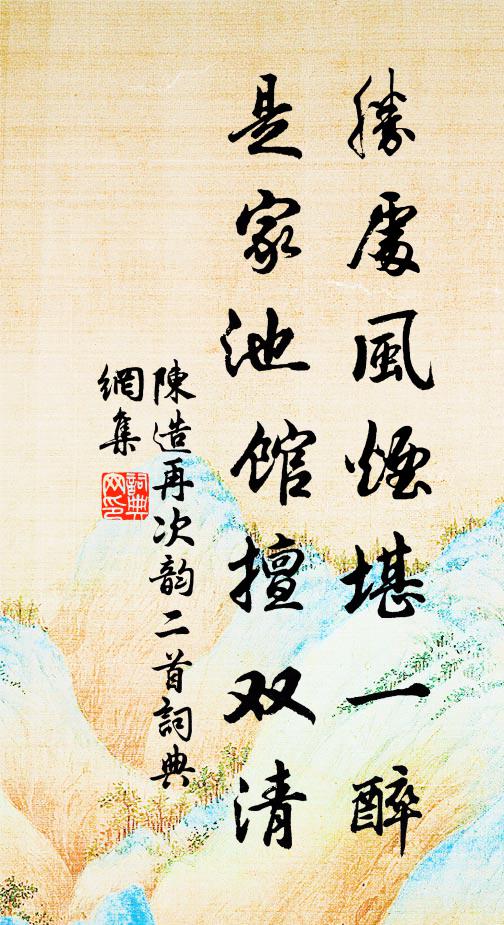 勝處風煙堪一醉
是家池館擅双清
陳造再次韵二首詞典
網集
詞典
网印